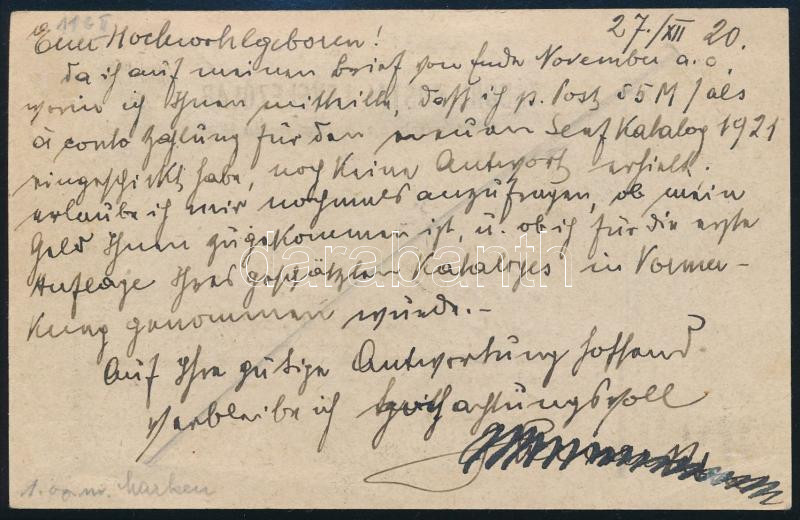 27./XII 20.
Euer Hochwohlgeboren!
Da ich auf meinen Brief von Ende November a. c.
worin ich Ihnen mitteilte, daß ich p. Post 85 M / als
à conto Zahlung für den neuen Senf Katalog 1921
eingeschickt habe, noch keine Antwort erhielt.
erlaube ich mir nochmals anzufragen, ob mein
Geld Ihnen zugekommen ist, u. ob ich für die erste
Auflage Ihres geschätzten Kataloges in Vormer-
kung genommen wurde.-
Auf Ihre gütige Antwortung hoffend
verbleibe ich hochachtungsvoll
darabanth
Marken